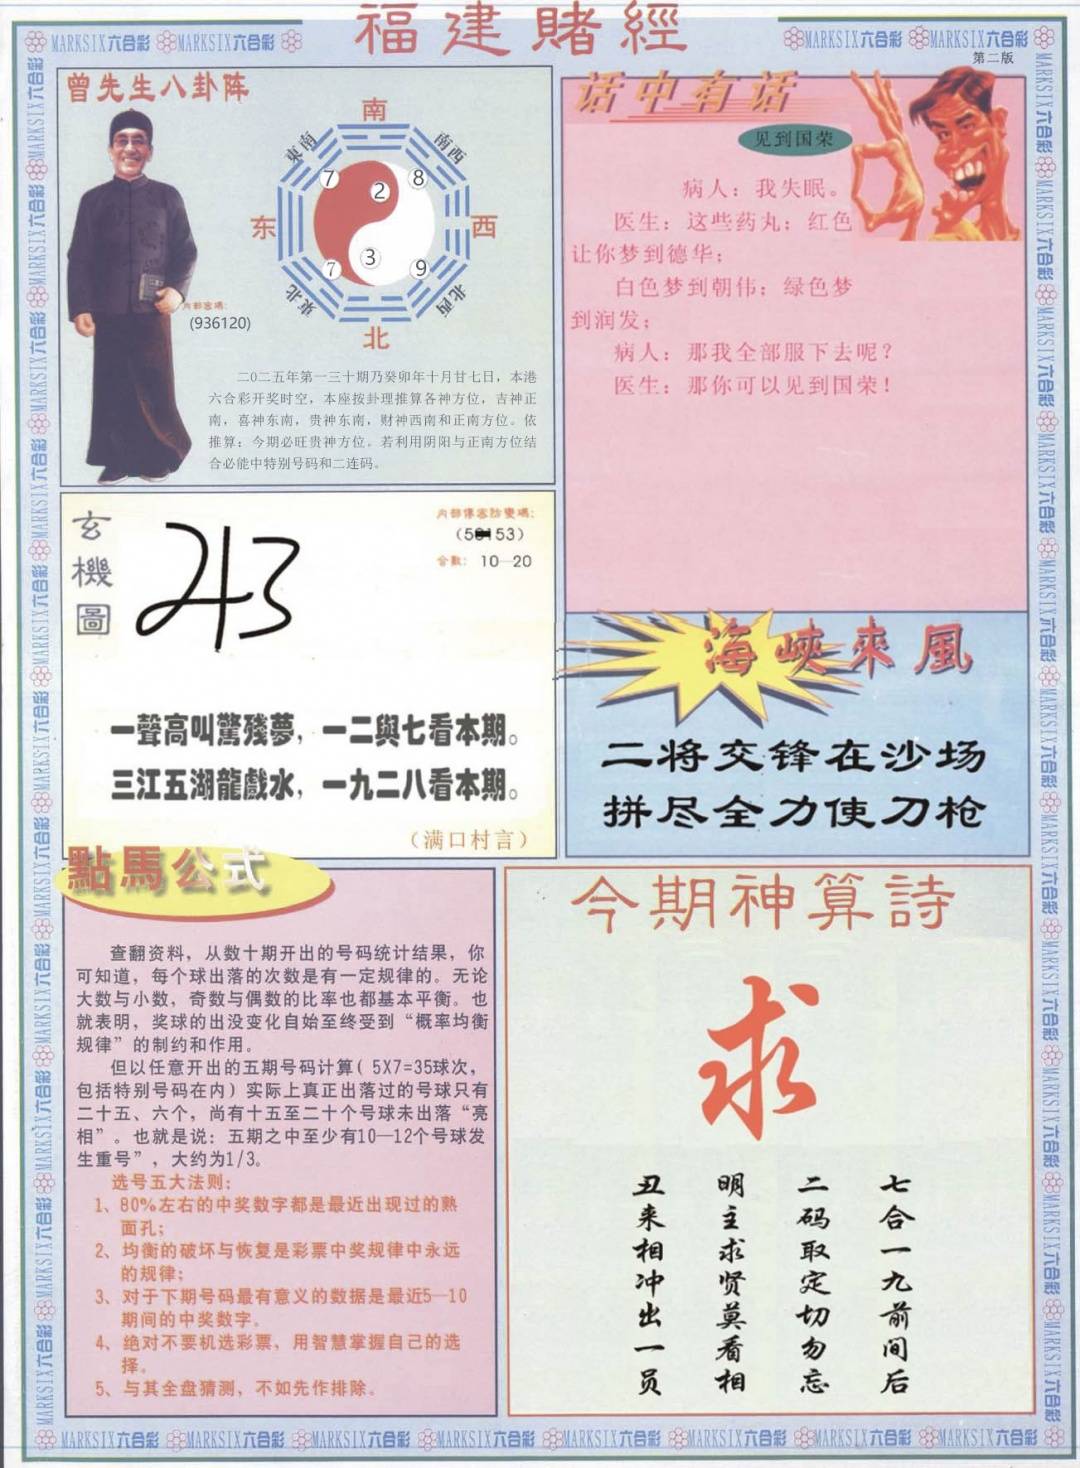 福建賭經
MARKSIX六合彩 MARKSIX六合彩
MARKSIX六合彩 MARKSIX六合彩
第二版
曾先生八卦阵
南
東南
南西
7
2
8
东
西
3
7
9
東北
北西
北
内部密碼:
(936120)
二〇二五年第一三十期乃癸卯年十月廿七日，本港
六合彩开奖时空，本座按卦理推算各神方位，吉神正
南，喜神东南，贵神东南，财神西南和正南方位。依
推算：今期必旺贵神方位。若利用阴阳与正南方位结
合必能中特别号码和二连码。
话中有话
见到国荣
病人：我失眠。
医生：这些药丸；红色
让你梦到德华；
白色梦到朝伟；绿色梦
到润发；
病人：那我全部服下去呢？
医生：那你可以见到国荣！
玄機圖
内部傳密防變碼:
合數: 10—20
一聲高叫驚殘夢，一二與七看本期。
三江五湖龍戲水，一九二八看本期。
（满口村言）
海峽來風
二将交锋在沙场
拼尽全力使刀枪
點馬公式
查翻资料，从数十期开出的号码统计结果，你
可知道，每个球出落的次数是有一定规律的。无论
大数与小数，奇数与偶数的比率也都基本平衡。也
就表明，奖球的出没变化自始至终受到“概率均衡
规律”的制约和作用。
但以任意开出的五期号码计算( 5X7=35球次，
包括特别号码在内）实际上真正出落过的号球只有
二十五、六个，尚有十五至二十个号球未出落“亮
相”。也就是说：五期之中至少有10—12个号球发
生重号”，大约为1/3。
选号五大法则:
1、80%左右的中奖数字都是最近出现过的熟
面孔;
2、均衡的破坏与恢复是彩票中奖规律中永远
的规律;
3、对于下期号码最有意义的数据是最近5—10
期间的中奖数字。
4、绝对不要机选彩票，用智慧掌握自己的选
择。
5、与其全盘猜测，不如先作排除。
今期神算詩
求
七合一九前间后
二码取定切勿忘
明主求贤莫看相
丑来相冲出一员
MARKSIX六合彩 MARKSIX六合彩 MARKSIX六合彩 MARKSIX六合彩 MARKSIX六合彩 MARKSIX六合彩 MARKSIX六合彩 MARKSIX六合彩